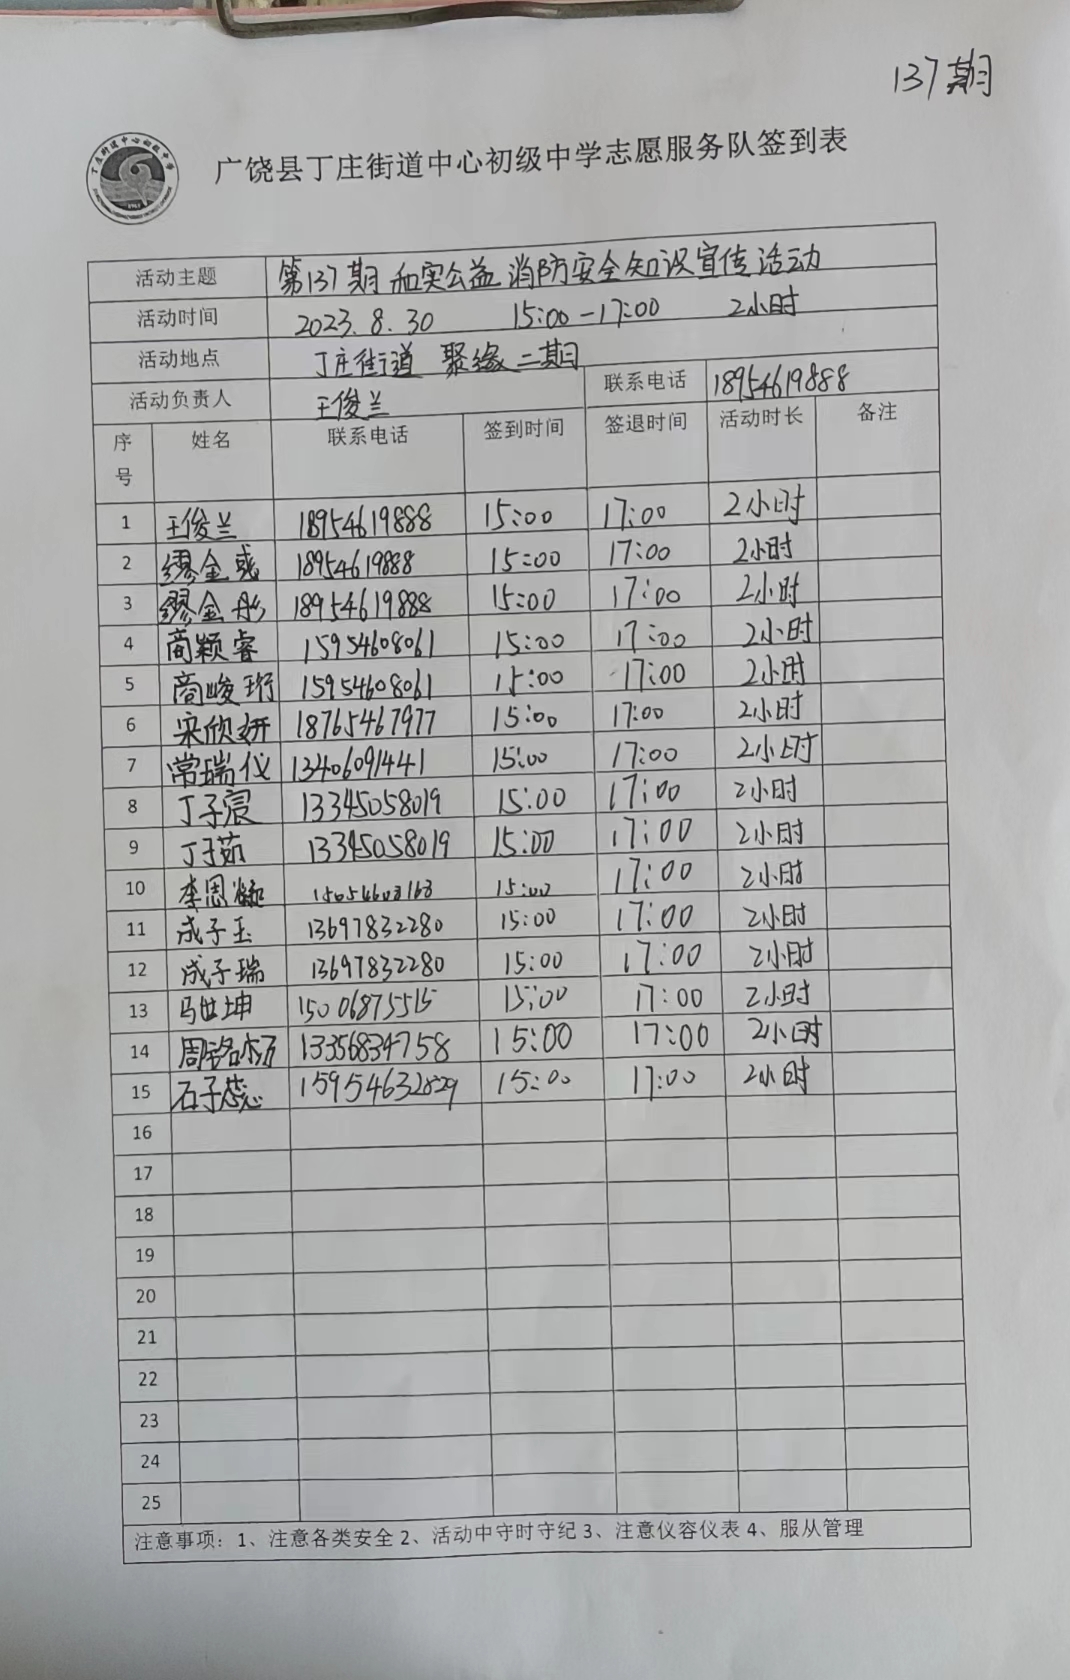 137期
丁庄街道中心初级中学
广饶县丁庄街道中心初级中学志愿服务队签到表
活动主题 第137期和实公益消防安全知识宣传活动
活动时间 2023.8.30 15:00-17:00 2小时
活动地点 丁庄街道 聚缘二期
活动负责人 王俊兰 联系电话 18954619888
序号 姓名 联系电话 签到时间 签退时间 活动时长 备注
1 王俊兰 18954619888 15:00 17:00 2小时
2 缪金彧 18954619888 15:00 17:00 2小时
3 缪金彤 18954619888 15:00 17:00 2小时
4 商颖睿 15954608061 15:00 17:00 2小时
5 商峻珩 15954608061 15:00 17:00 2小时
6 宋欣妍 18765467977 15:00 17:00 2小时
7 常瑞仪 13406091441 15:00 17:00 2小时
8 丁子宸 13345058019 15:00 17:00 2小时
9 丁子茹 13345058019 15:00 17:00 2小时
10 李恩 15:00 17:00 2小时
11 成子玉 13697832280 15:00 17:00 2小时
12 成子瑞 13697832280 15:00 17:00 2小时
13 马世坤 15006875515 15:00 17:00 2小时
14 周铭 13356834758 15:00 17:00 2小时
15 石子蕊 15954632829 15:00 17:00 2小时
16
17
18
19
20
21
22
23
24
25
注意事项：1、注意各类安全 2、活动中守时守纪 3、注意仪容仪表 4、服从管理